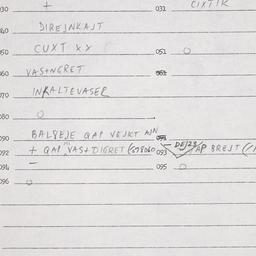 030 + 031 CIXTIK
040 DIREJNKAJT
050 CUXT XX 051 O
060 VAS+NGRET 061
070 INKALTEVASER
080 O
090 BALBEJE QAP VEJKT 091
092 + QAP VAS+DIGRET 093 AP BREJT
094 – 095 O
096 O